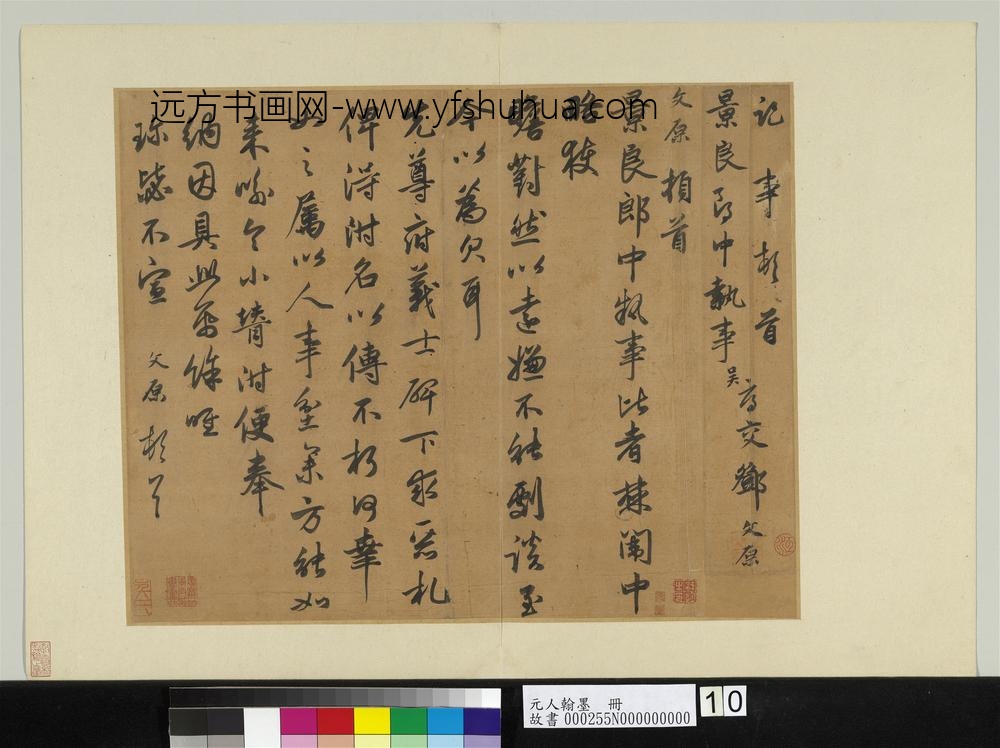 远方书画网-www.yfshuhua.com
記 事 頓首
景良郎中執事 吳 寓交 鄧文原
文原頓首
景良郎中執事比者棘闈中
瞻對然以遠嫌不能劇談至
今以為欠耳
先尊府義士碑下求惡札
俾得附名以傳不朽何幸
如之屬以人事坌集方能如
來喻令小壻附便奉
納因具此不宣餘唯
珍毖不宣 文原頓首
元人翰墨 冊
故書000255N000000000
10